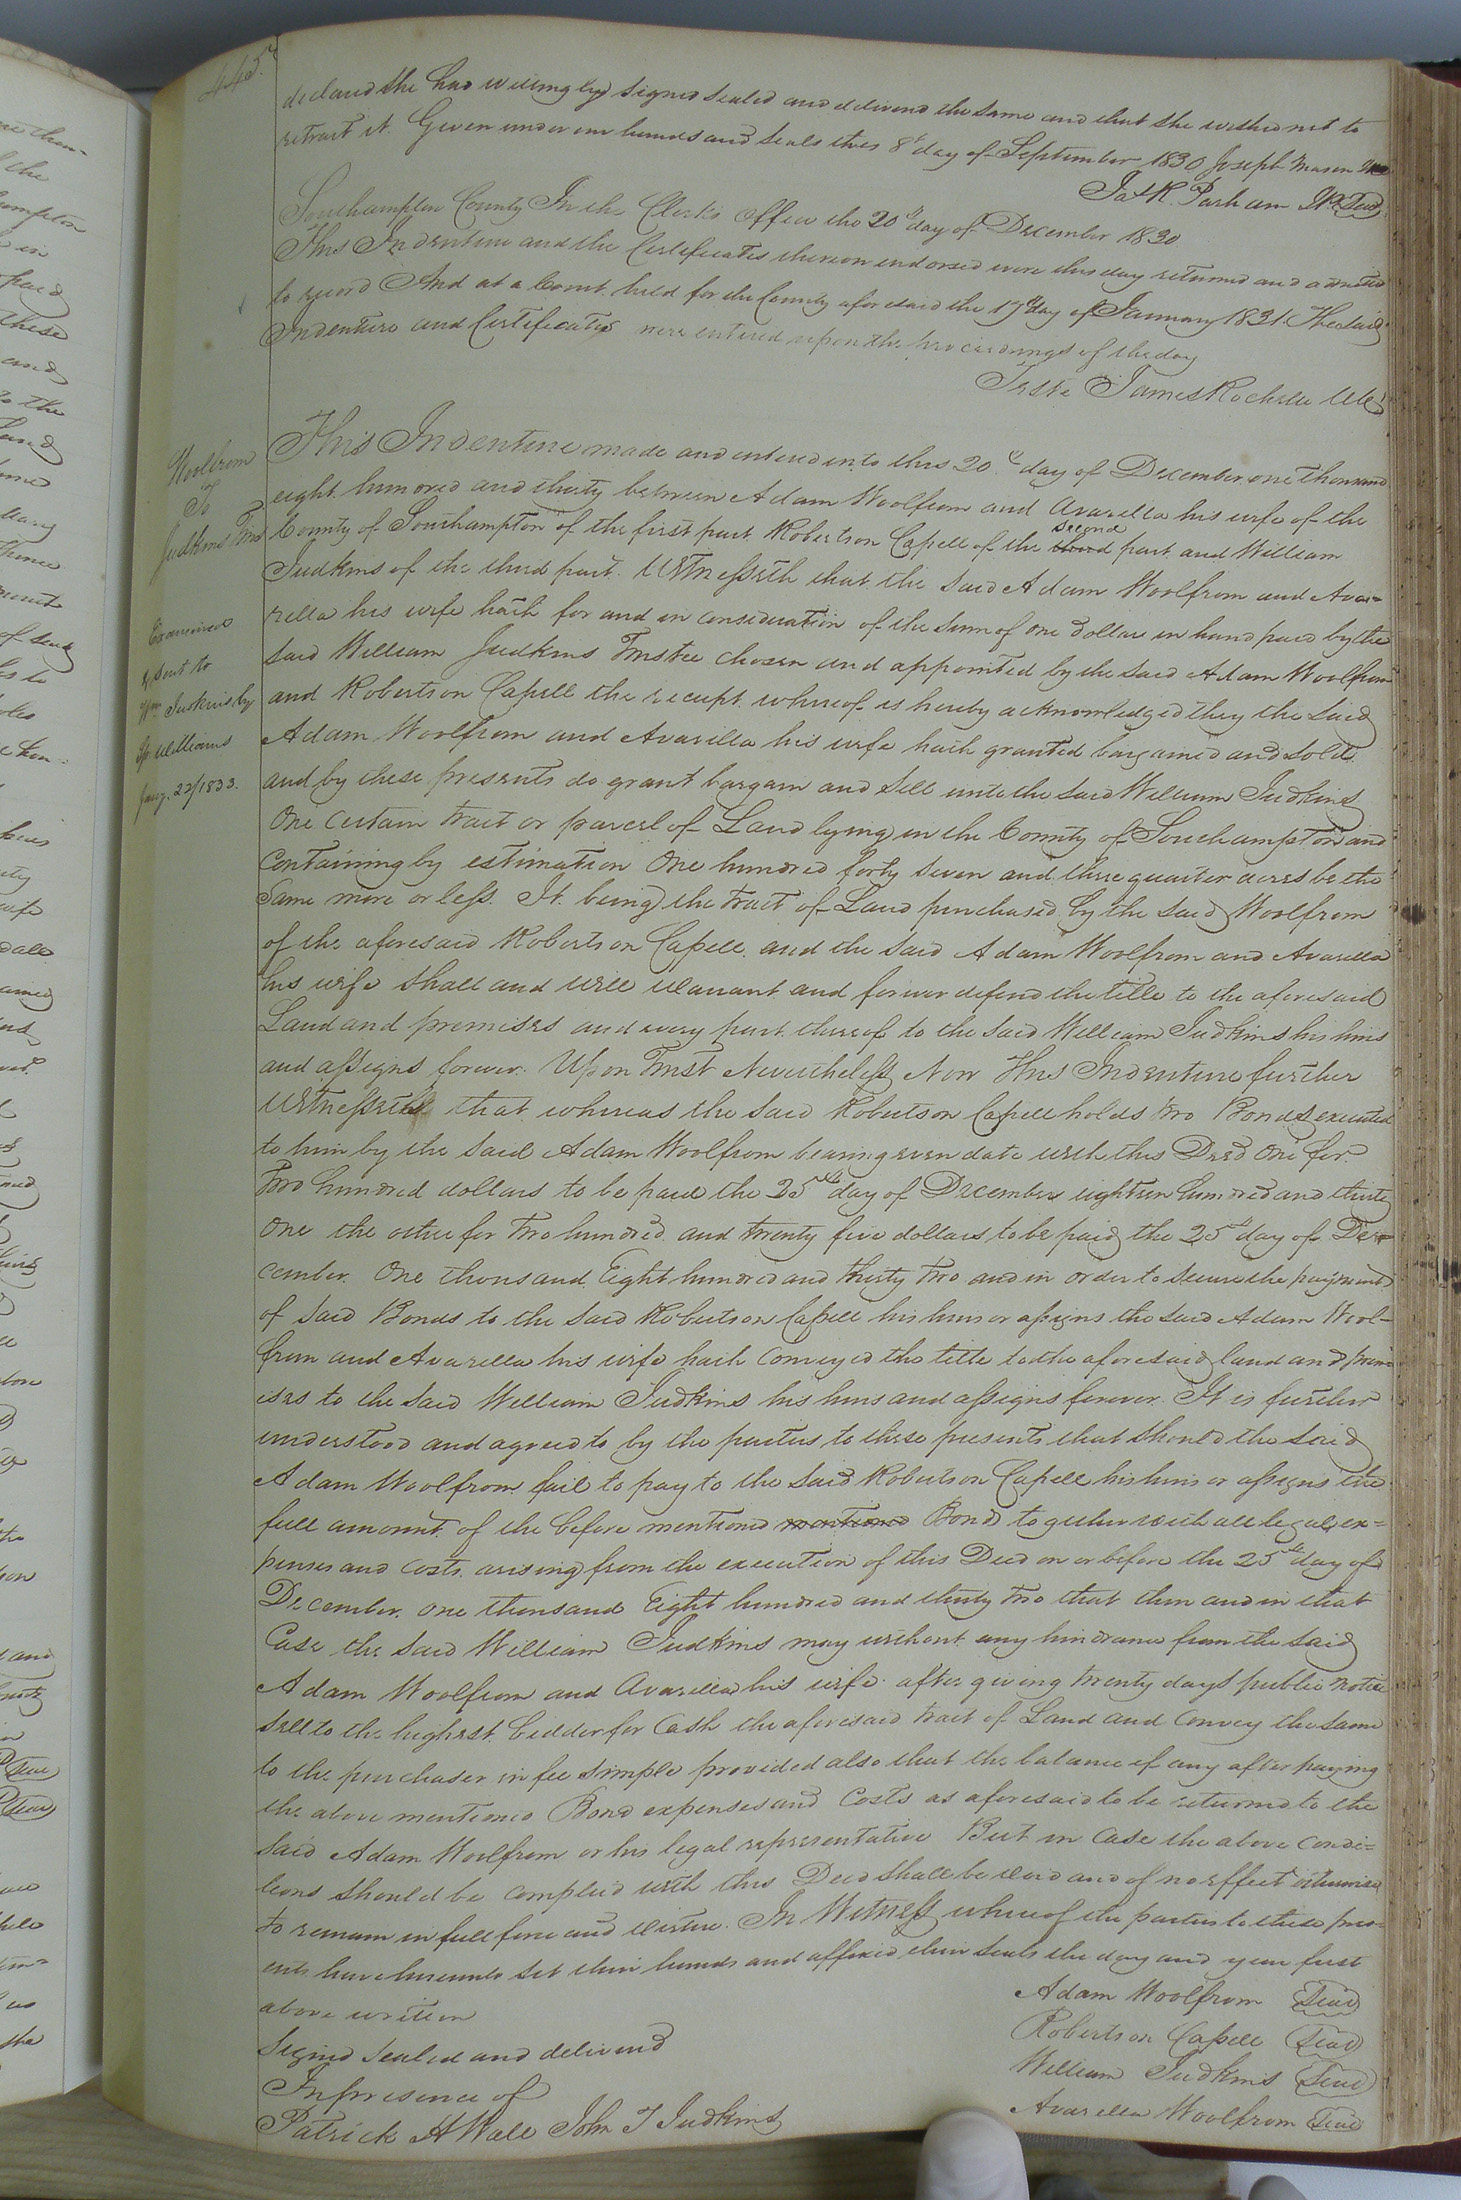 445
declared she had willingly signed sealed and delivered the same and that she wished not to
retract it. Given under our hands and seals this 8th day of September 1830 Joseph Mason
Ja. R. Parham Seal
Southampton County In the Clerks office the 20th day of December 1830
This Indenture and the Certificates thereon endorsed were this day returned and admitted
to record And at a Court held for the County aforesaid the 17th day of January 1831. The said
Indenture and Certificates were entered upon the proceedings of the day
Teste James Rochelle Clk
Woolfrom
To
Judkins Trus
Examined
& sent to
Wm. Judkins by
Jany. 22/1833.
This Indenture made and entered into this 20th day of December one thousand
eight hundred and thirty between Adam Woolfrom and Avarella his wife of the
County of Southampton of the first part Robertson Capell of the third second part and William
Judkins of the third part. Witnesseth that the said Adam Woolfrom and Ava=
rella his wife hath for and in consideration of the sum of one dollar in hand paid by the
said William Judkins Trustee chosen and appointed by the said Adam Woolfrom
and Robertson Capell the receipt whereof is hereby acknowledged they the said
Adam Woolfrom and Avarilla his wife hath granted bargained and sold
and by these presents do grant bargain and sell unto the said William Judkins
One certain tract or parcel of Land lying in the County of Southampton and
containing by estimation One hundred forty seven and three quarter acres be the
same more or less. It being the tract of Land purchased by the said Woolfrom
of the aforesaid Robertson Capell, and the said Adam Woolfrom and Avarella
his wife shall and will warrant and forever defend the title to the aforesaid
Land and premises and every part thereof to the said William Judkins his heirs
and assigns forever. Upon Trust Nevertheless Now This Indenture further
Witnesseth that whereas the said Robertson Capell holds two Bonds executed
to him by the said Adam Woolfrom bearing even date with this Deed One for
Two hundred dollars to be paid the 25th day of December eighteen hundred and thirty
one the other for two hundred and twenty five dollars to be paid the 25th day of De=
cember One thousand Eight hundred and thirty two and in order to secure the payment
of said Bonds to the said Robertson Capell his heirs or assigns the said Adam Wool-
from and Avarella his wife hath conveyed the title to the aforesaid land and prem
ises to the said William Judkins his heirs and assigns forever. It is further
understood and agreed to by the parties to these presents that should the said
Adam Woolfrom fail to pay to the said Robertson Capell his heirs or assigns the
full amount of the before mentioned mentioned Bond together with all legal ex=
penses and costs arising from the execution of this Deed on or before the 25th day of
December one thousand Eight hundred and thirty two that then and in that
Case the said William Judkins may without any hindrance from the said
Adam Woolfrom and Avarilla his wife after giving twenty days public notice
sell to the highest bidder for Cash the aforesaid tract of Land and convey the same
to the purchaser in fee simple provided also that the balance if any after paying
the above mentioned Bond expenses and Costs as aforesaid to be returned to the
said Adam Woolfrom or his legal representative But in Case the above condi=
tions should be complied with this Deed shall be void and of no effect otherwise
to remain in full force and virtue. In Witness whereof the parties to these pres=
ents have hereunto set their hands and affixed their seals the day and year first
above written
Adam Woolfrom Seal
Signed sealed and delivered
Robertson Capell Seal
In presence of
William Judkins Seal
Patrick H Wall John T Judkins
Avarella Woolfrom Seal